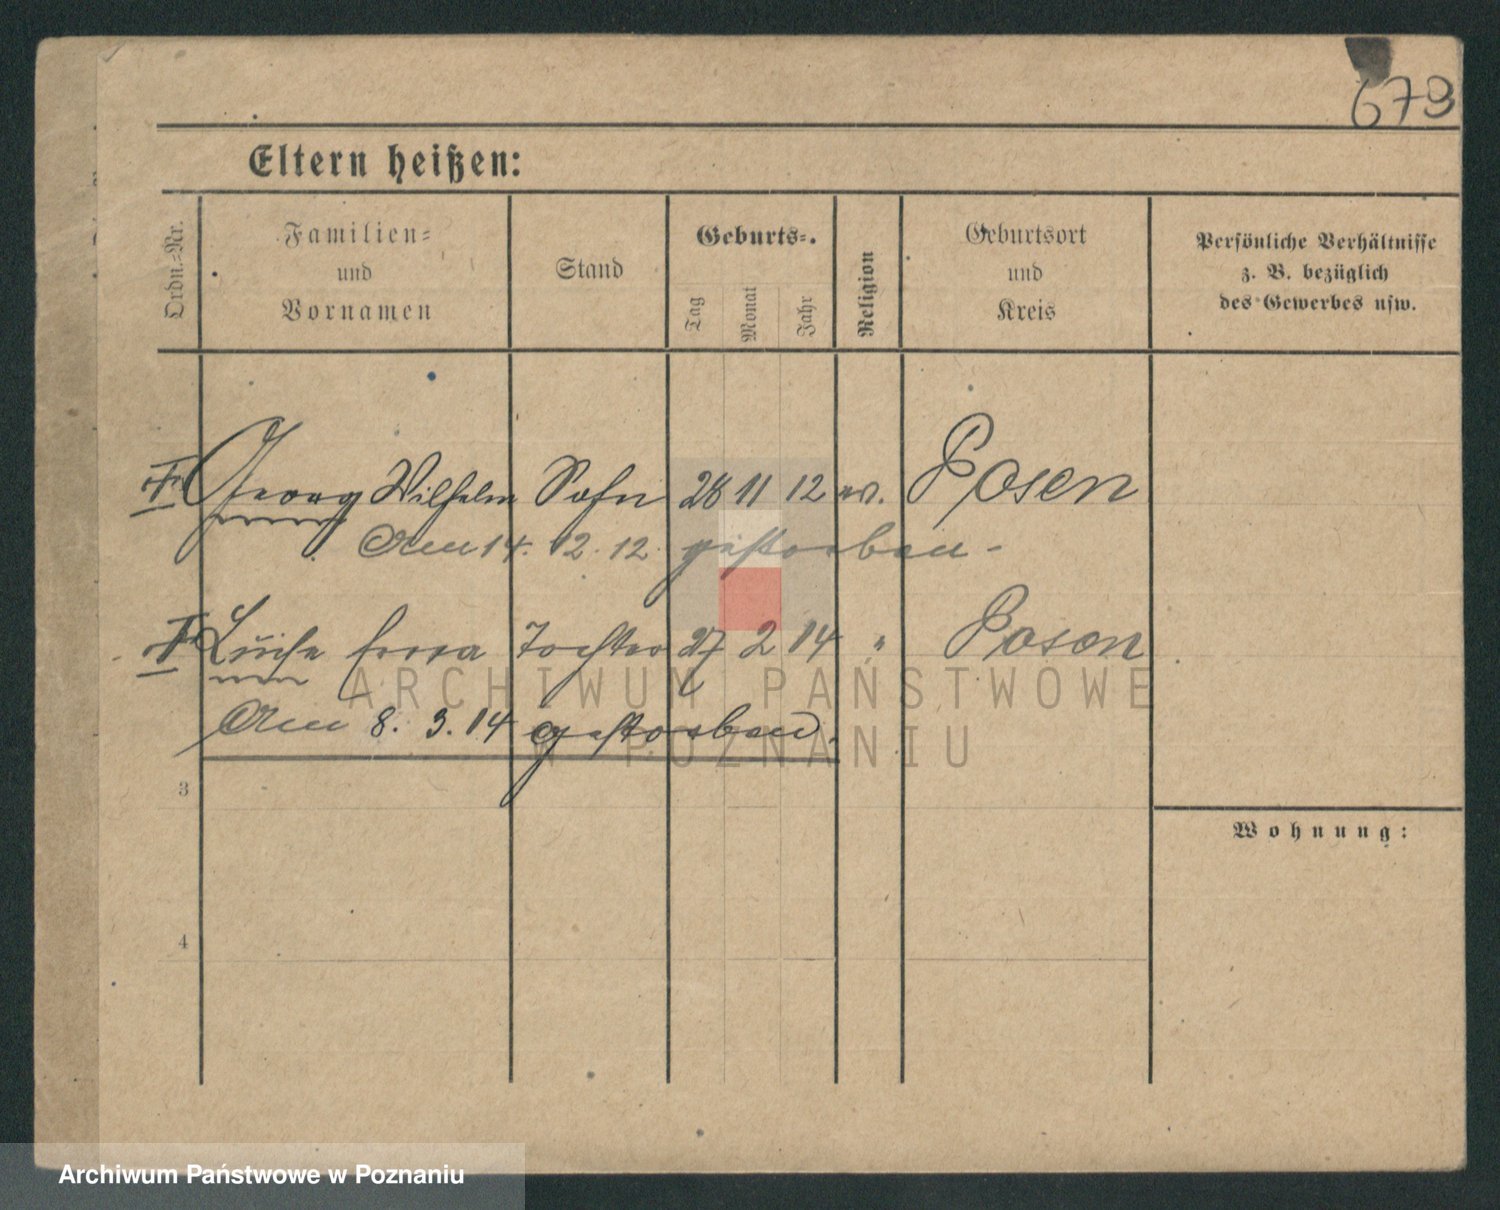 679
Eltern heißen:
Ordn.=Nr.
Familien=
und
Vornamen
Stand
Geburts=
Tag
Monat
Jahr
Religion
Geburtsort
und
Kreis
Persönliche Verhältnisse
z. B. bezüglich
des Gewerbes usw.
Georg Wilhelm Sohn 28 11 12 ev. Posen
Am 14. 12. 12. gestorben -
Luise Erna Tochter 27 2 14 " Posen
Am 8. 3. 14 gestorben.
3
4
Wohnung:
ARCHIWUM PAŃSTWOWE
W POZNANIU
Archiwum Państwowe w Poznaniu